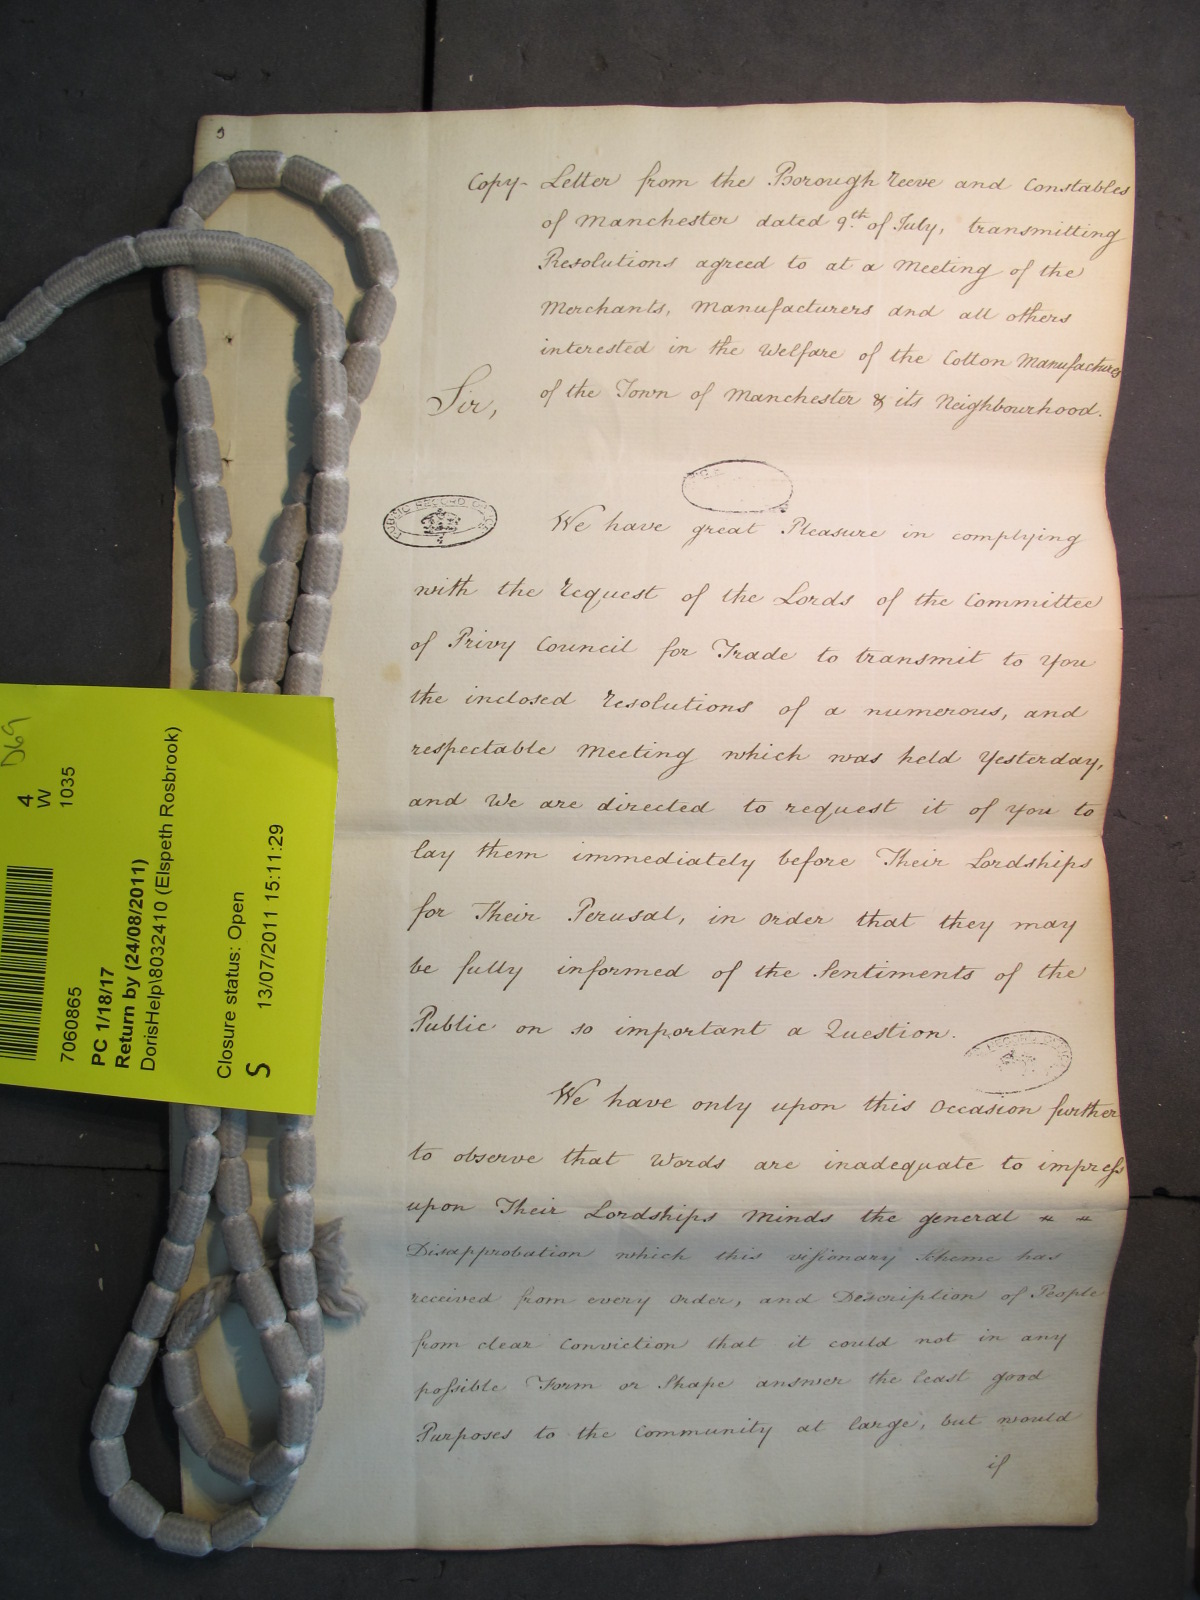 Copy- Letter from the Borough reeve and Constables
of Manchester dated 9th of July, transmitting
Resolutions agreed to at a Meeting of the
Merchants, Manufacturers and all others
interested in the Welfare of the Cotton Manufactures
of the Town of Manchester & its Neighbourhood.
Sir,
PUBLIC RECORD OFFICE
We have great Pleasure in complying
with the request of the Lords of the Committee
of Privy Council for Trade to transmit to you
the inclosed resolutions of a numerous, and
respectable Meeting which was held Yesterday,
and We are directed to request it of you to
lay them immediately before Their Lordships
for Their Perusal, in order that they may
be fully informed of the Sentiments of the
Public on so important a Question.
We have only upon this Occasion further
to observe that Words are inadequate to impress
upon Their Lordships Minds the general
Disapprobation which this visionary Scheme has
received from every order, and Description of People
from clear Conviction that it could not in any
possible Form or Shape answer the least good
Purposes to the Community at large, but would
if
D69
4
W
1035
7060865
PC 1/18/17
Return by (24/08/2011)
DorisHelp\8032410 (Elspeth Rosbrook)
Closure status: Open
S 13/07/2011 15:11:29